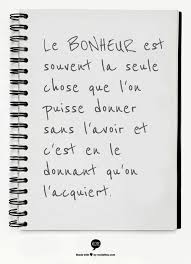 Le BONHEUR est
souvent la seule
chose que l'on
puisse donner
sans l'avoir et
c'est en le
donnant qu'on
l'acquiert.